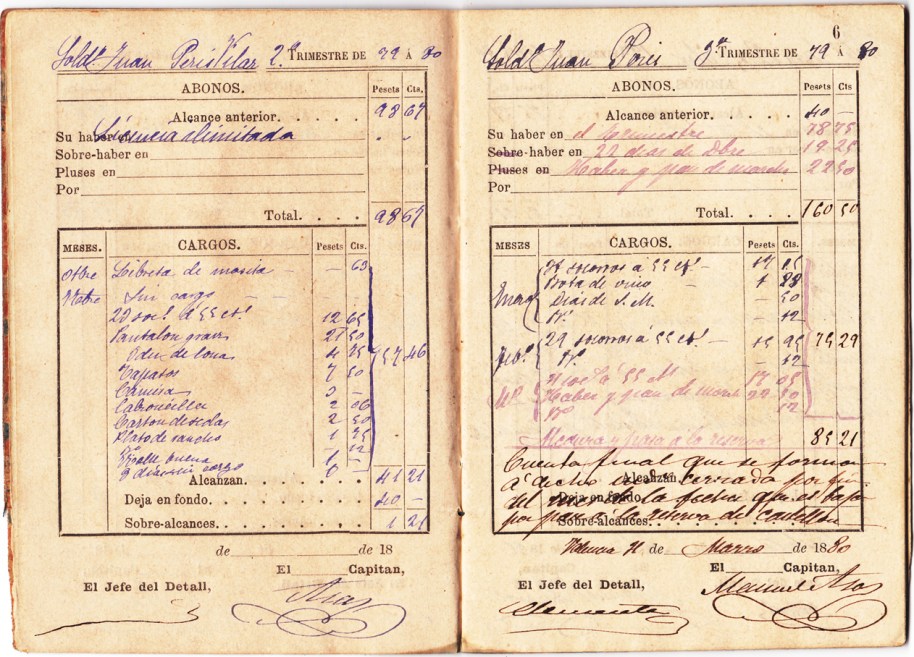 Sold.º Juan Peris Vilar 2.º TRIMESTRE DE 79 Á 80
ABONOS. Pesets Cts.
Alcance anterior. . . . . 98 67
Su haber en Licencia ilimitada - -
Sobre-haber en
Pluses en
Por
Total. . . . . 98 67
MESES. CARGOS. Pesets Cts.
Otbre Libreta de masita — 63
Nbre Sin cargo - - -
23 soc.s á 55 ct.s 12 65
Pantalon 27 50
Idem de lona 4 25 57 46
Zapatos 7 50
Camisa 3 —
Calzoncillo 2 06
2 50
Plato de rancho 1 25
12
buena 1 -
Alcanzan. . . . . 41 21
Deja en fondo. . . . . 40 —
Sobre-alcances. . . . . 1 21
de de 18
El Jefe del Detall, El Capitan,
Asas
6
Sold.º Juan Peris 3.er TRIMESTRE DE 79 Á 80
ABONOS. Pesets Cts.
Alcance anterior. . . . . 40 —
Su haber en el trimestre 78 75
Sobre-haber en 22 dias de Dbre 19 25
Pluses en Haber y pan de marcha 22 50
Por
Total. . . . . 160 50
MESES CARGOS. Pesets Cts.
31 socorros á 55 ct.s — 17 05
Bota de vino — 1
Enero Dias de S. M. — 50
— 12
Feb.º 29 socorros á 55 ct.s — 15 95 75 29
— 12
31 soc.s á 55 ct.s 17 05
Haber y pan de march 22 50
12
pasa á la reserva 85 21
Cuenta final que se forma
Alcanzan
á dicho cerrada por fin
Deja en fondo.
del mes de la fecha que es baja
Sobre-alcances.
por pase á la reserva de Castellon
Valencia 31 de Marzo de 1880
El Jefe del Detall, El Capitan,
Manuel Asas